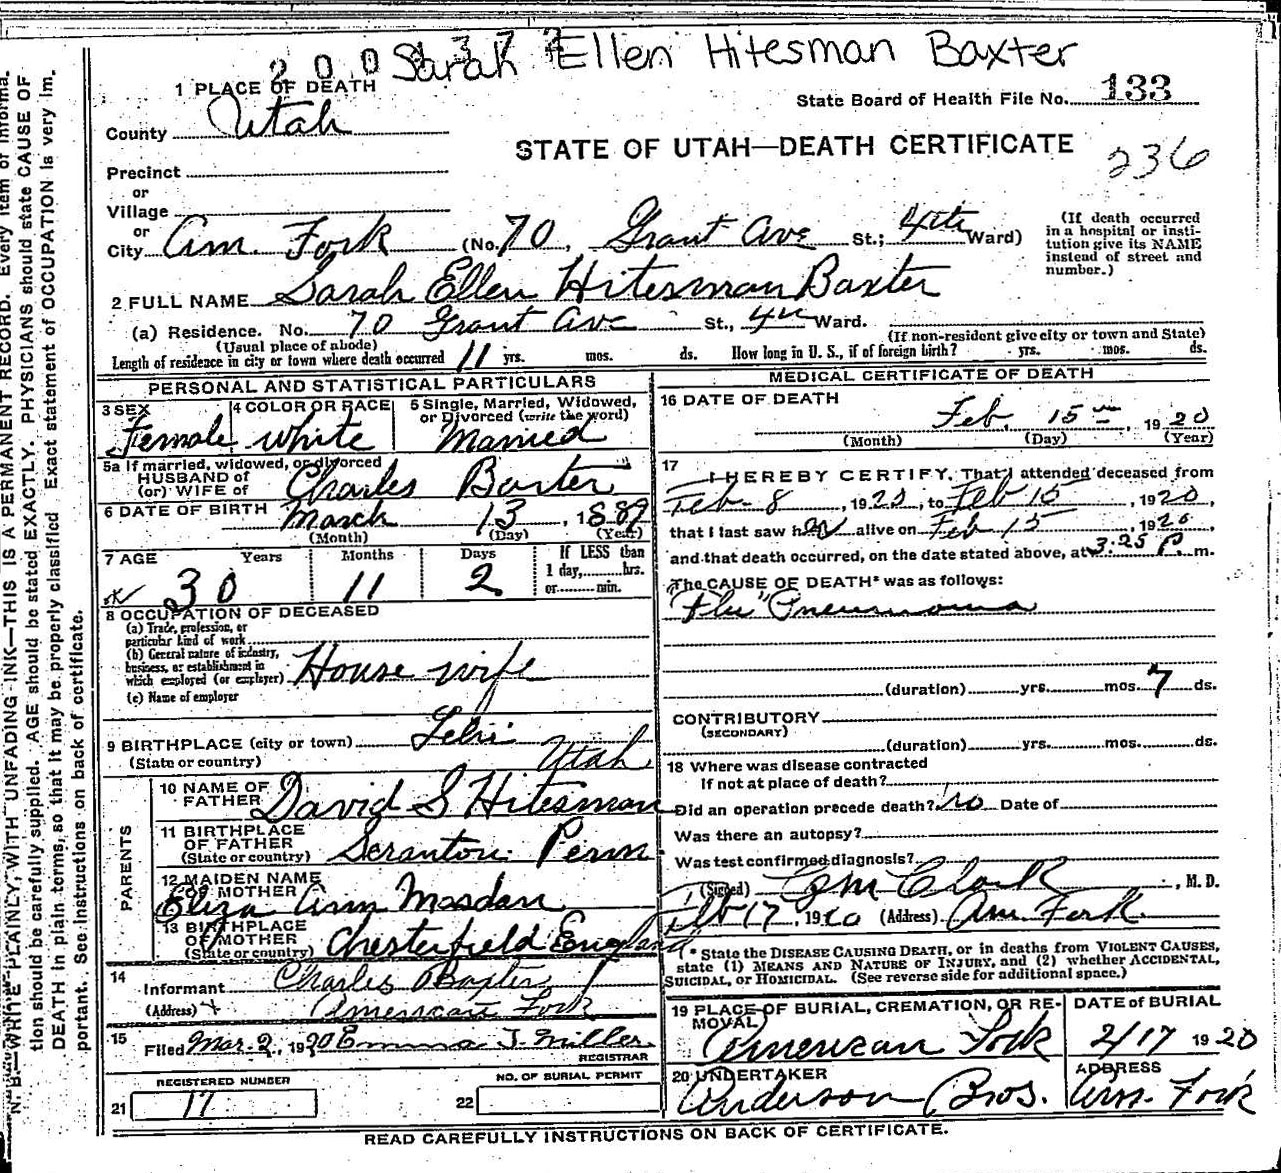 2001377
Sarah Ellen Hitesman Baxter
1 PLACE OF DEATH
State Board of Health File No. 133
County Utah
STATE OF UTAH—DEATH CERTIFICATE
236
Precinct
or
Village
or
City Am. Fork (No. 70, Grant Ave St.; 4th Ward)
(If death occurred in a hospital or insti-
tution give its NAME instead of street and number.)
2 FULL NAME Sarah Ellen Hitesman Baxter
(a) Residence. No. 70 Grant Ave St., 4th Ward.
(Usual place of abode)
(If non-resident give city or town and State)
Length of residence in city or town where death occurred 11 yrs. mos. ds. How long in U. S., if of foreign birth? yrs. mos. ds.
PERSONAL AND STATISTICAL PARTICULARS
3 SEX
Female
4 COLOR OR RACE
White
5 Single, Married, Widowed,
or Divorced (write the word)
Married
5a If married, widowed, or divorced
HUSBAND of
(or) WIFE of Charles Baxter
6 DATE OF BIRTH March 13, 1889
(Month) (Day) (Year)
7 AGE Years Months Days If LESS than
1 day, hrs.
or min.
OK 30 11 2
8 OCCUPATION OF DECEASED
(a) Trade, profession, or
particular kind of work
(b) General nature of industry,
business, or establishment in
which employed (or employer) House wife
(c) Name of employer
9 BIRTHPLACE (city or town) Lehi
(State or country) Utah
PARENTS
10 NAME OF
FATHER David S Hitesman
11 BIRTHPLACE
OF FATHER
(State or country) Scranton Penn
12 MAIDEN NAME
OF MOTHER
Eliza Ann Masden
13 BIRTHPLACE
OF MOTHER
(State or country) Chesterfield England
14
Informant Charles Baxter
(Address) American Fork
15
Filed Mar. 2, 1920 Emma J. Miller
REGISTRAR
REGISTERED NUMBER
21 17
NO. OF BURIAL PERMIT
22
MEDICAL CERTIFICATE OF DEATH
16 DATE OF DEATH
Feb. 15, 1920
(Month) (Day) (Year)
17
I HEREBY CERTIFY, That I attended deceased from
Feb. 8, 1920, to Feb 15, 1920,
that I last saw her alive on Feb 15, 1920,
and that death occurred, on the date stated above, at 3.25 P. m.
The CAUSE OF DEATH* was as follows:
"Flu" Pneumonia
(duration) yrs. mos. 7 ds.
CONTRIBUTORY
(SECONDARY)
(duration) yrs. mos. ds.
18 Where was disease contracted
If not at place of death?
Did an operation precede death? no Date of
Was there an autopsy?
Was test confirmed diagnosis?
(Signed) Clark, M. D.
Feb 17, 1920 (Address) Am. Fork
* State the DISEASE CAUSING DEATH, or in deaths from VIOLENT CAUSES,
state (1) MEANS AND NATURE OF INJURY, and (2) whether ACCIDENTAL,
SUICIDAL, or HOMICIDAL. (See reverse side for additional space.)
19 PLACE OF BURIAL, CREMATION, OR RE-
MOVAL
American Fork
DATE of BURIAL
2/17 1920
20 UNDERTAKER
Anderson Bros.
ADDRESS
Am. Fork
READ CAREFULLY INSTRUCTIONS ON BACK OF CERTIFICATE.
N. B.—WRITE PLAINLY, WITH UNFADING INK—THIS IS A PERMANENT RECORD. Every item of informa-
tion should be carefully supplied. AGE should be stated EXACTLY. PHYSICIANS should state CAUSE OF
DEATH in plain terms, so that it may be properly classified. Exact statement of OCCUPATION is very im-
portant. See instructions on back of certificate.